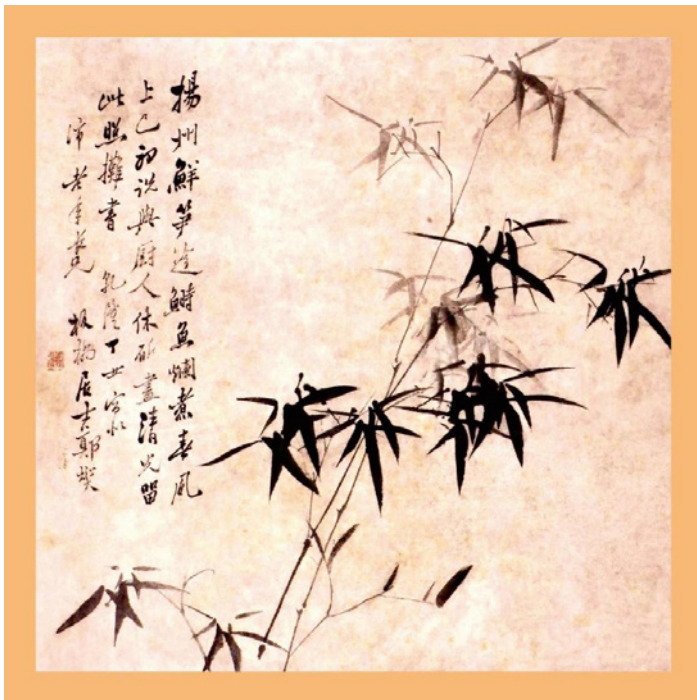 揚州鮮笋趁鰣魚爛煮春風
上巳初說與厨人休斫盡清光留
此照攤書 乾隆丁丑寫於
濟老年長兄 板橋居士鄭燮